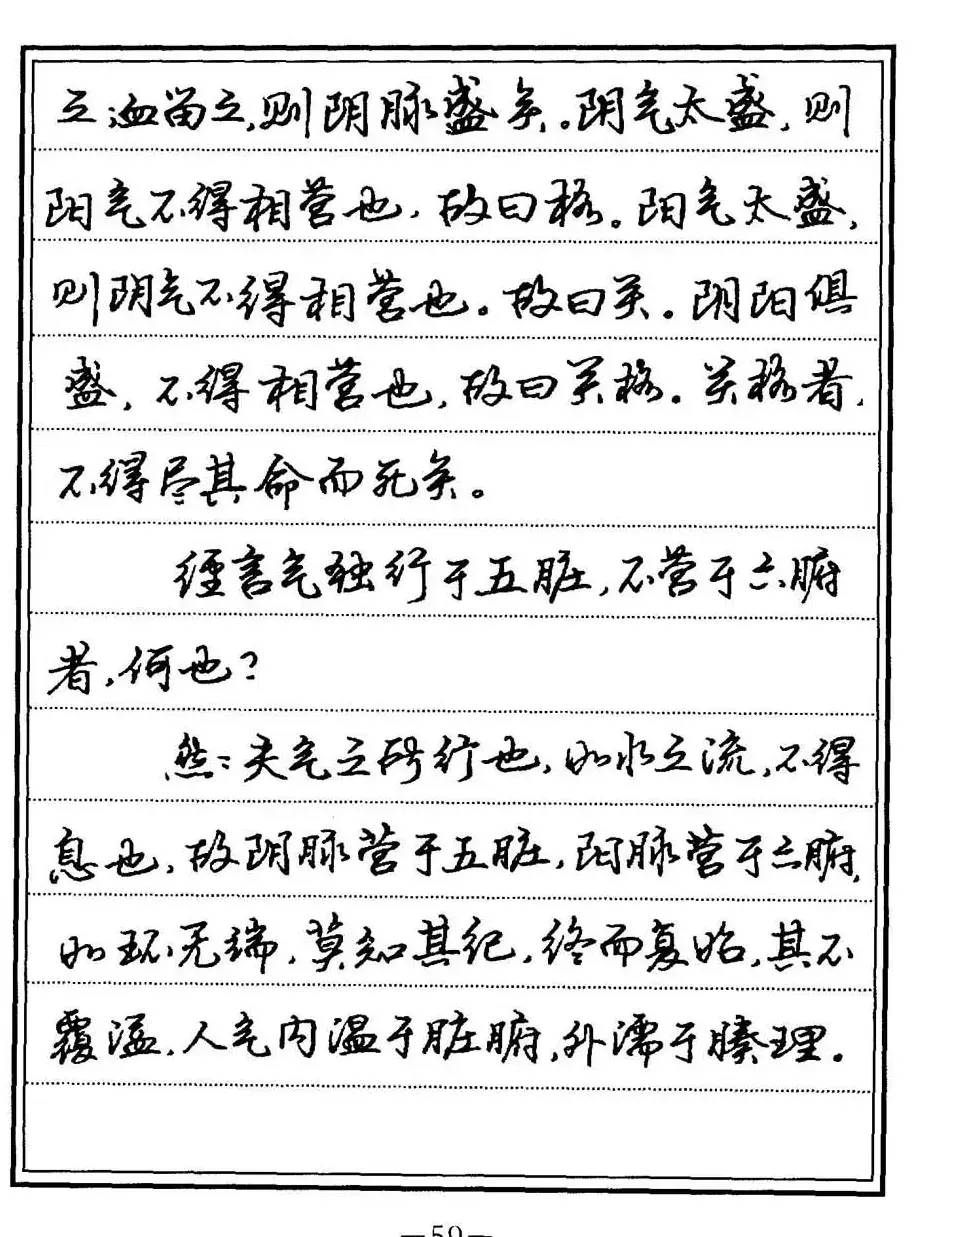 之；血留之，则阴脉盛矣。阴气太盛，则
阳气不得相营也，故曰格。阳气太盛，
则阴气不得相营也。故曰关。阴阳俱
盛，不得相营也，故曰关格。关格者，
不得尽其命而死矣。
经言气独行于五脏，不营于六腑
者，何也？
然：夫气之所行也，如水之流，不得
息也，故阴脉营于五脏，阳脉营于六腑，
如环无端，莫知其纪，终而复始，其不
覆溢，人气内温于脏腑，外濡于腠理。
—59—